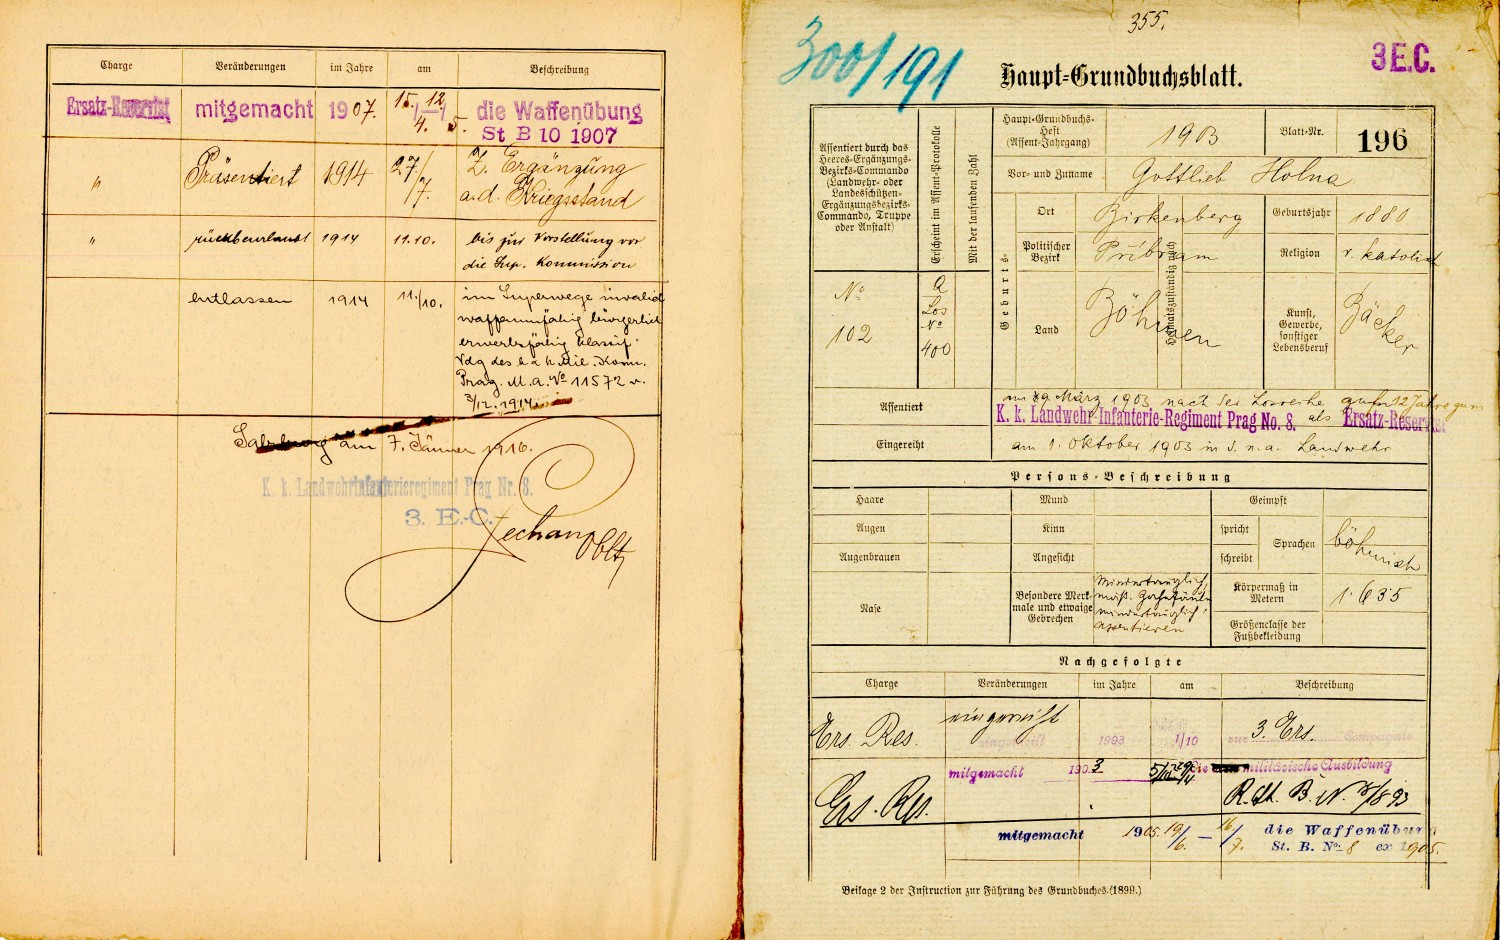 Charge Veränderungen im Jahre am Beschreibung
Ersatz-Reservist mitgemacht 1907. 15./4. – 12./5. die Waffenübung
St B 10 1907
" Präsentiert 1914 27/7. Z. Ergänzung
a. d. Kriegsstand
" rückbeurlaubt 1914 11.10. bis zur Vorstellung vor
die Sup. Kommission
entlassen 1914 11./10. im Superwege invalid
waffenunfähig bürgerlich
erwerbsfähig klassif.
Vdg des k u k Mil. Komm.
Prag. M.A. No 11572 v.
3/12. 1914.
Salzburg am 7. Jänner 1916.
K. k. Landwehrinfanterieregiment Prag Nr. 8.
3. E.-C.
Oblt
355.
300/191
3 E.C.
Haupt-Grundbuchsblatt.
Assentiert durch das
Heeres-Ergänzungs-
Bezirks-Commando
(Landwehr- oder
Landesschützen-
Ergänzungsbezirks-
Commando, Truppe
oder Anstalt)
Erscheint im Assent-Protokolle
Mit der laufenden Zahl
No
102
A
Los
No
400
Haupt-Grundbuchs-
Heft
(Assent-Jahrgang)
1903
Blatt-Nr. 196
Vor- und Zuname Gottlieb Holna
Geburts-
Ort Birkenberg
Politischer
Bezirk
Příbram
Land Böhmen
Heimatszuständig nach
Geburtsjahr 1880
Religion r. katolisch
Kunst,
Gewerbe,
sonstiger
Lebensberuf
Bäcker
Assentiert am 29 März 1903 nach der Losreihe auf 12 Jahre zum
K. k. Landwehr-Infanterie-Regiment Prag No. 8. als Ersatz-Reservist
Eingereiht am 1. Oktober 1903 in d. n. a. Landwehr
Persons-Beschreibung
Haare Mund Geimpft
Augen Kinn spricht Sprachen böhmisch
Augenbrauen Angesicht schreibt
Nase
Besondere Merk-
male und etwaige
Gebrechen
Mindertauglich,
mindertauglich
assentieren
Körpermaß in
Metern
1·635
Größenclasse der
Fußbekleidung
Nachgefolgte
Charge Veränderungen im Jahre am Beschreibung
Ers. Res. eingereiht 3. Ers.
eingereiht 1903 1/10 zur Compagnie
mitgemacht 1903 die militärische Ausbildung
Ers. Res.
mitgemacht 1905. 19/6. – 16/7. die Waffenübung
St. B. No. 8 ex 1905.
Beilage 2 der Instruction zur Führung des Grundbuches.(1899.)